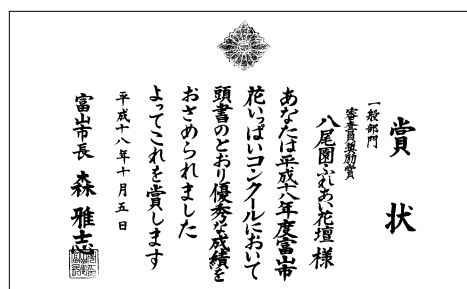 賞状
一般部門
審査員奨励賞
八尾園ふれあい花壇様
あなたは平成十八年度富山市
花いっぱいコンクールにおいて
頭書のとおり優秀な成績を
おさめられました
よってこれを賞します
平成十八年十月五日
富山市長 森雅志